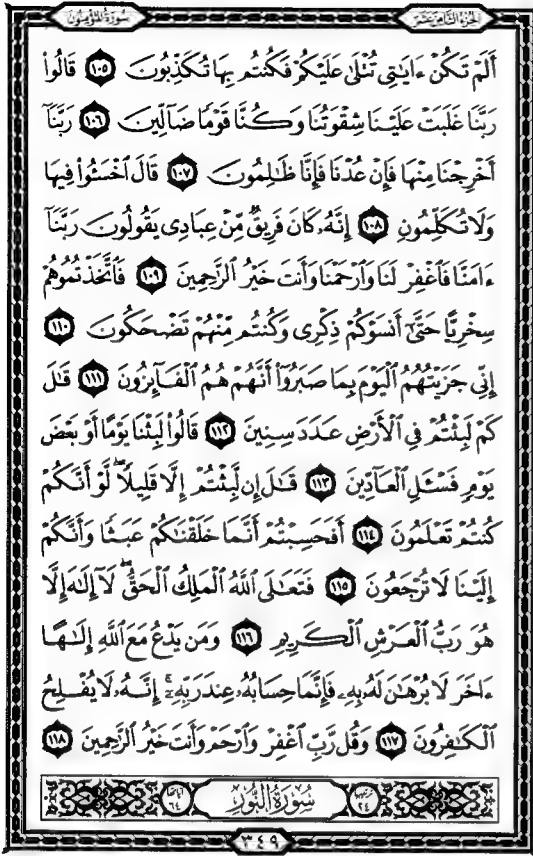 الجزء الثامن عشر
سورة المؤمنون
أَلَمْ تَكُنْ ءَايَـٰتِى تُتْلَىٰ عَلَيْكُمْ فَكُنتُم بِهَا تُكَذِّبُونَ ١٠٥ قَالُوا۟
رَبَّنَا غَلَبَتْ عَلَيْنَا شِقْوَتُنَا وَكُنَّا قَوْمًا ضَآلِّينَ ١٠٦ رَبَّنَآ
أَخْرِجْنَا مِنْهَا فَإِنْ عُدْنَا فَإِنَّا ظَـٰلِمُونَ ١٠٧ قَالَ ٱخْسَـُٔوا۟ فِيهَا
وَلَا تُكَلِّمُونِ ١٠٨ إِنَّهُۥ كَانَ فَرِيقٌ مِّنْ عِبَادِى يَقُولُونَ رَبَّنَآ
ءَامَنَّا فَٱغْفِرْ لَنَا وَٱرْحَمْنَا وَأَنتَ خَيْرُ ٱلرَّٰحِمِينَ ١٠٩ فَٱتَّخَذْتُمُوهُمْ
سِخْرِيًّا حَتَّىٰٓ أَنسَوْكُمْ ذِكْرِى وَكُنتُم مِّنْهُمْ تَضْحَكُونَ ١١٠
إِنِّى جَزَيْتُهُمُ ٱلْيَوْمَ بِمَا صَبَرُوٓا۟ أَنَّهُمْ هُمُ ٱلْفَآئِزُونَ ١١١ قَـٰلَ
كَمْ لَبِثْتُمْ فِى ٱلْأَرْضِ عَدَدَ سِنِينَ ١١٢ قَالُوا۟ لَبِثْنَا يَوْمًا أَوْ بَعْضَ
يَوْمٍ فَسْـَٔلِ ٱلْعَآدِّينَ ١١٣ قَـٰلَ إِن لَّبِثْتُمْ إِلَّا قَلِيلًا ۖ لَّوْ أَنَّكُمْ
كُنتُمْ تَعْلَمُونَ ١١٤ أَفَحَسِبْتُمْ أَنَّمَا خَلَقْنَـٰكُمْ عَبَثًا وَأَنَّكُمْ
إِلَيْنَا لَا تُرْجَعُونَ ١١٥ فَتَعَـٰلَى ٱللَّهُ ٱلْمَلِكُ ٱلْحَقُّ ۖ لَآ إِلَـٰهَ إِلَّا
هُوَ رَبُّ ٱلْعَرْشِ ٱلْكَرِيمِ ١١٦ وَمَن يَدْعُ مَعَ ٱللَّهِ إِلَـٰهًا
ءَاخَرَ لَا بُرْهَـٰنَ لَهُۥ بِهِۦ فَإِنَّمَا حِسَابُهُۥ عِندَ رَبِّهِۦٓ ۚ إِنَّهُۥ لَا يُفْلِحُ
ٱلْكَـٰفِرُونَ ١١٧ وَقُل رَّبِّ ٱغْفِرْ وَٱرْحَمْ وَأَنتَ خَيْرُ ٱلرَّٰحِمِينَ ١١٨
ترتيبها ٢٤ سُورَةُ النُّورِ آياتها ٦٤
٣٤٩